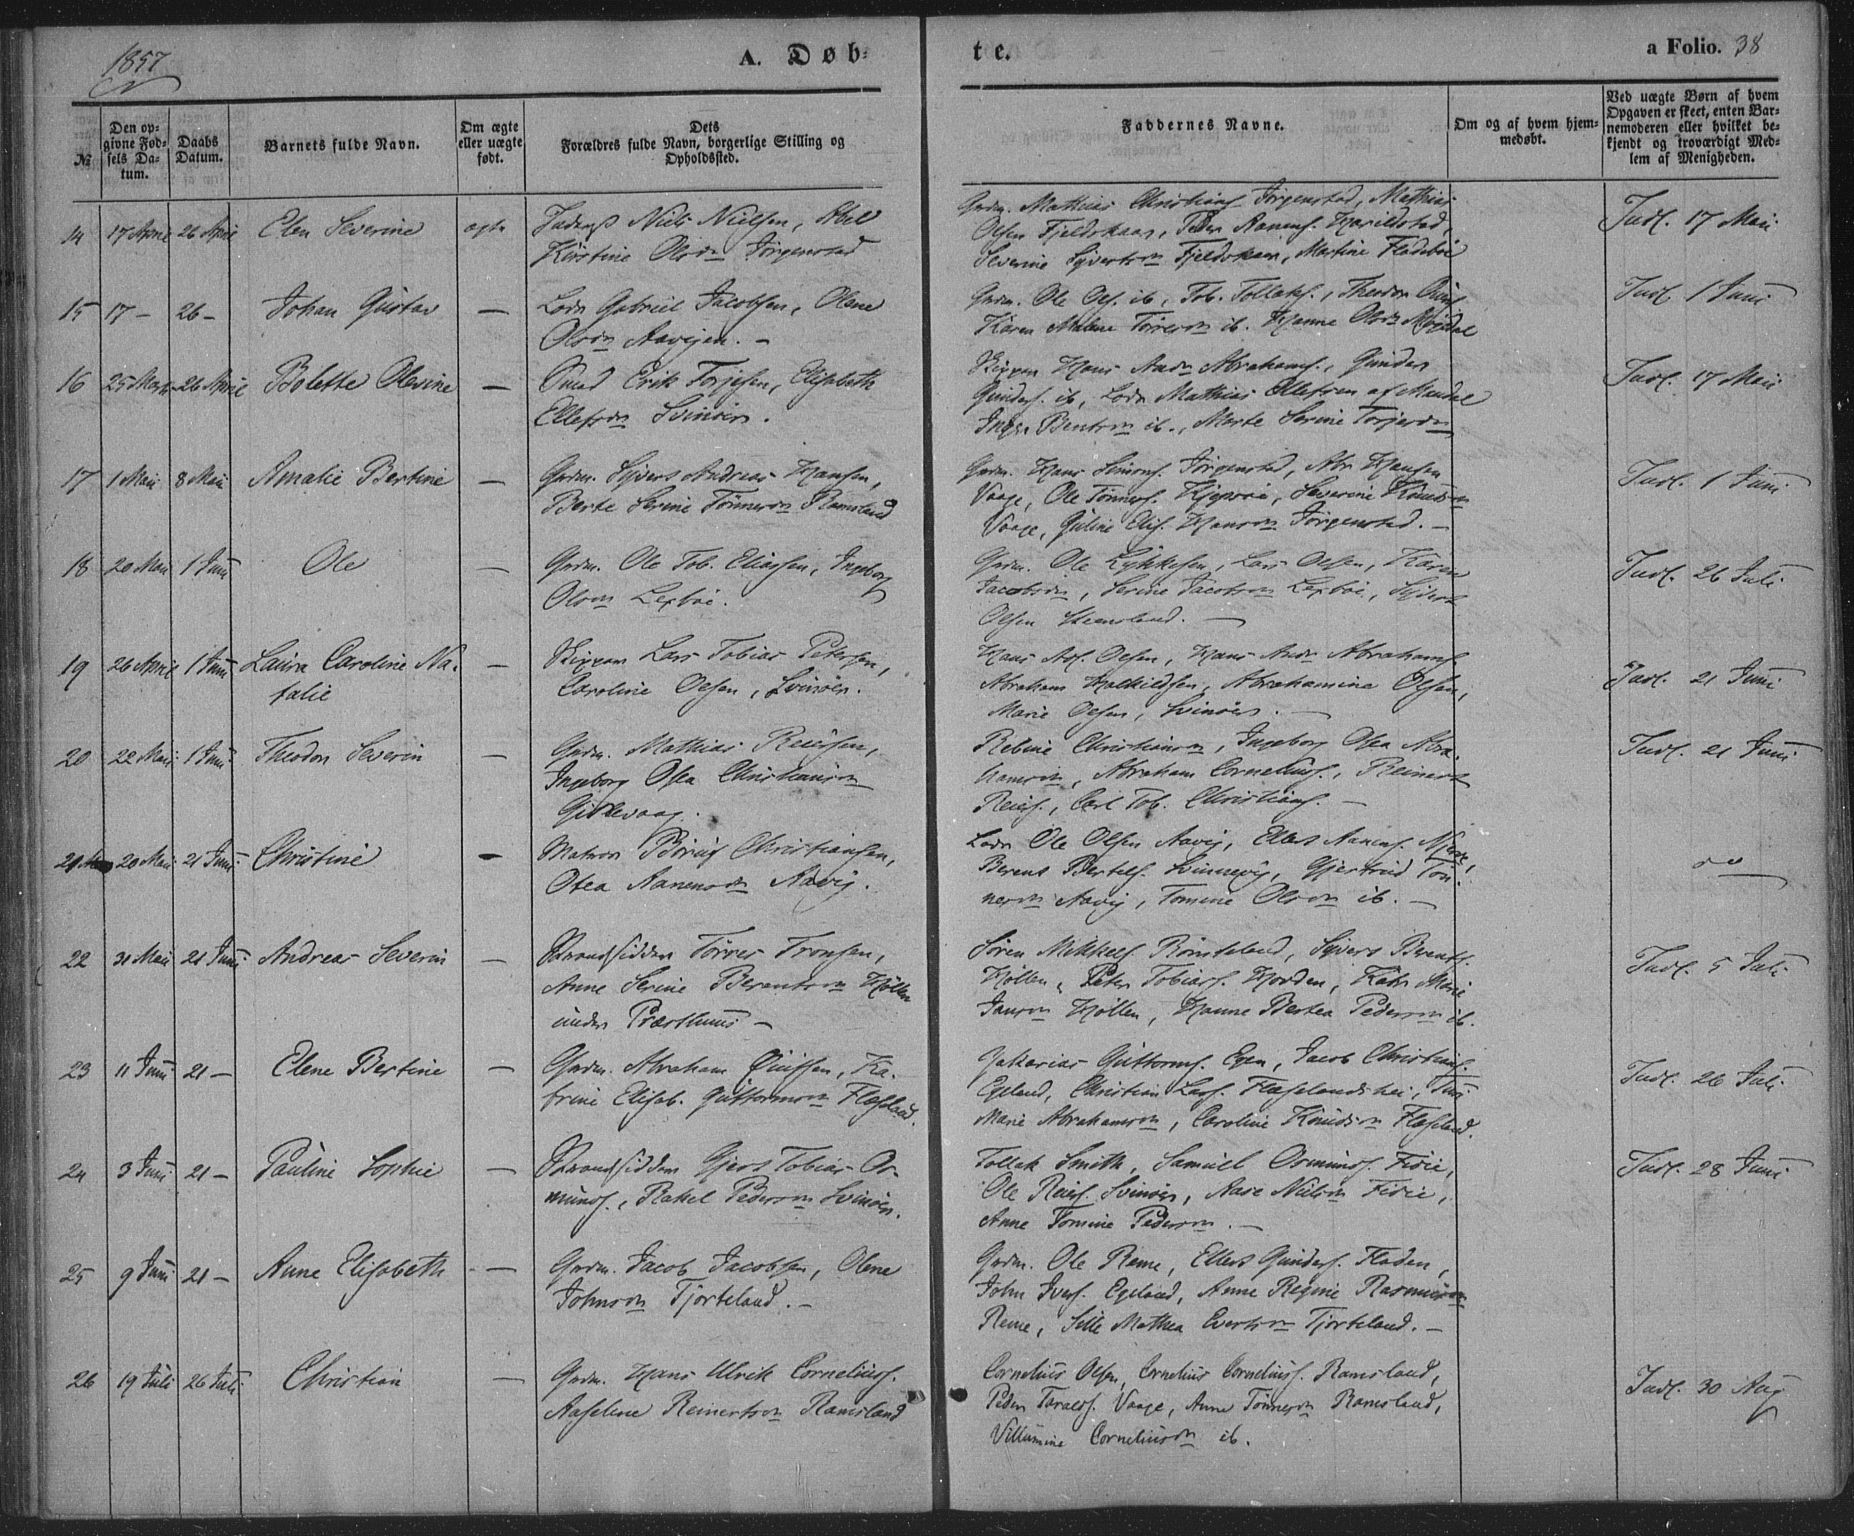 1857
A. Døb-
te.
a Folio. 38
№
Den op-
givne Fød-
sels Da-
tum.
Daabs
Datum.
Barnets fulde Navn.
Om ægte
eller uægte
født.
Dets
Forældres fulde Navn, borgerlige Stilling og
Opholdssted.
Faddernes Navne.
Om og af hvem hjem-
medøbt.
Ved uægte Børn af hvem
Opgaven er skeet, enten Bar-
nemoderen eller hvilket be-
kjendt og troværdigt Med-
lem af Menigheden.
14 17 April 26 April Elen Severine ægte Niels Nielsen, Abel
Kirstine Olsdn Jørgenstad
Gmdn. Mathias Christians. Jørgenstad, Mathias
Olsen Fjeldskaar, Peder Aanens. Haraldstad,
Severine Syvertsdn Fjeldskaar, Martine Fladebøe
Indl. 17 Mai
15 17 – 26 – Johan Gustav — Lods Gabriel Jacobsen, Olene
Olsdn Aavigen. –
Gmdn. Ole Ols. ib, Tob. Tollaks., Theodor
Karen Malene Tørresdn ib. Hanne Olsdn
Indl. 1 Juni
16 25 Marts 26 April Bolette Olevine — Erik Torjesen, Elisabeth
Ellefsdn Svinøer.
Skipper Hans Andr. Abrahams., Gunder
Gunders. ib, Lods Mathias Ellefsen af Mandal
Inger Bentsdn ib., Marte Serine Torjesdn
Indl. 17 Mai
17 1 Mai 8 Mai Amalie Bertine — Gmdn. Syvert Andreas Hansen,
Berte Serine Tønnesdn Ramsland
Gmdn. Hans Simons. Jørgenstad, Abr. Hansen
Vaage, Ole Tønnes. Severine Knudsdn
Vaage, Guline Elis. Hansdn Jørgenstad. –
Indl. 1 Juni
18 20 Mai 1 Juni Ole — Gmdn. Ole Tob. Eliassen, Ingeborg
Olsdn Lexbøe.
Gmdn. Ole Lykkesen, Lars Olsen, Karen
Jacobsdn, Serine Jacobsdn Lexbøe, Syvert
Olsen Steensland. —
Indl. 26 Juli
19 26 April 1 Juni Laura Caroline Na-
talie — Skipper Lars Tobias Petersen,
Caroline Olsen, Svinøer.
Hans Olsen, Hans Andr. Abrahams.
Abraham Abrahamine Olsen,
Marie Olsen, Svinøer. —
Indl. 21 Juni
20 22 Mai 1 Juni Theodor Severin — Gmdn. Mathias Reiersen,
Ingeborg Osea Christiansdn
Gislevaag.
Rebine Christiansdn, Ingeborg Osea Abra-
hamsdn, Abraham Cornelius., Reinert
Reiers., Carl Tob. Christians. –
Indl. 21 Juni
21 20 Mai 21 Juni Christine – Matros Børiüs Christiansen,
Osea Aanensdn Aavig.
Lods Ole Olsen Aavig, Ellert Aanens.
Berent Bertels. Svinnevig, Gjertrud Tøn-
nesdn Aavig, Tomine Olsdn ib. –
do
22 31 Mai 21 Juni Andreas Severin — Strandsidder Tørres Tronsen,
Anne Serine Berentsdn Höllen
under Præsthuus –
Søren Mikkels. Syvert Berents.
Höllen, Peter Tobias. Hodden, Kath. Marie
Jansdn Höllen, Hanne Bertea Pedersdn ib.
Indl. 5 Juli
23 11 Juni 21 – Elene Bertine — Gmdn. Abraham Ka-
trine Elisab. Guttormsdn Flæseland.
Zakarias Guttorms. Egen, Jacob Christians.
Egeland, Christian Lars. Flæselandshei,
Marie Abrahamsdn, Caroline Knudsdn Flæseland.
Indl. 26 Juli
24 3 Juni 21 – Pauline Sophie — Strandsidder Gjert Tobias Os-
munds., Rakel Pedersdn Svinøer.
Tollak Smith, Samuel Osmunds.
Ole Reiers. Svinøer, Aase Nielsdn
Anne Tomine Pedersdn. –
Indl. 28 Juni
25 9 Juni 21 – Anne Elisabeth — Gmdn. Jacob Jacobsen, Olene
Johnsdn Tjorteland. –
Gmdn. Ole Reme, Ellert Gunders. Fladen,
John Ivers. Egeland, Anne Regine Rasmusdn
Reme, Sille Mathea Evertsdn Tjorteland. –
26 19 Juli 26 Juli Christian — Gmdn. Hans Ulrik Cornelius.
Aaselene Reinertsdn Ramsland
Cornelius Olsen, Cornelius Cornelius. Ramsland,
Peder Taralds. Vaage, Anne Tønnesdn Ramsland,
Villumine Corneliusdn ib.
Indl. 30 Aug